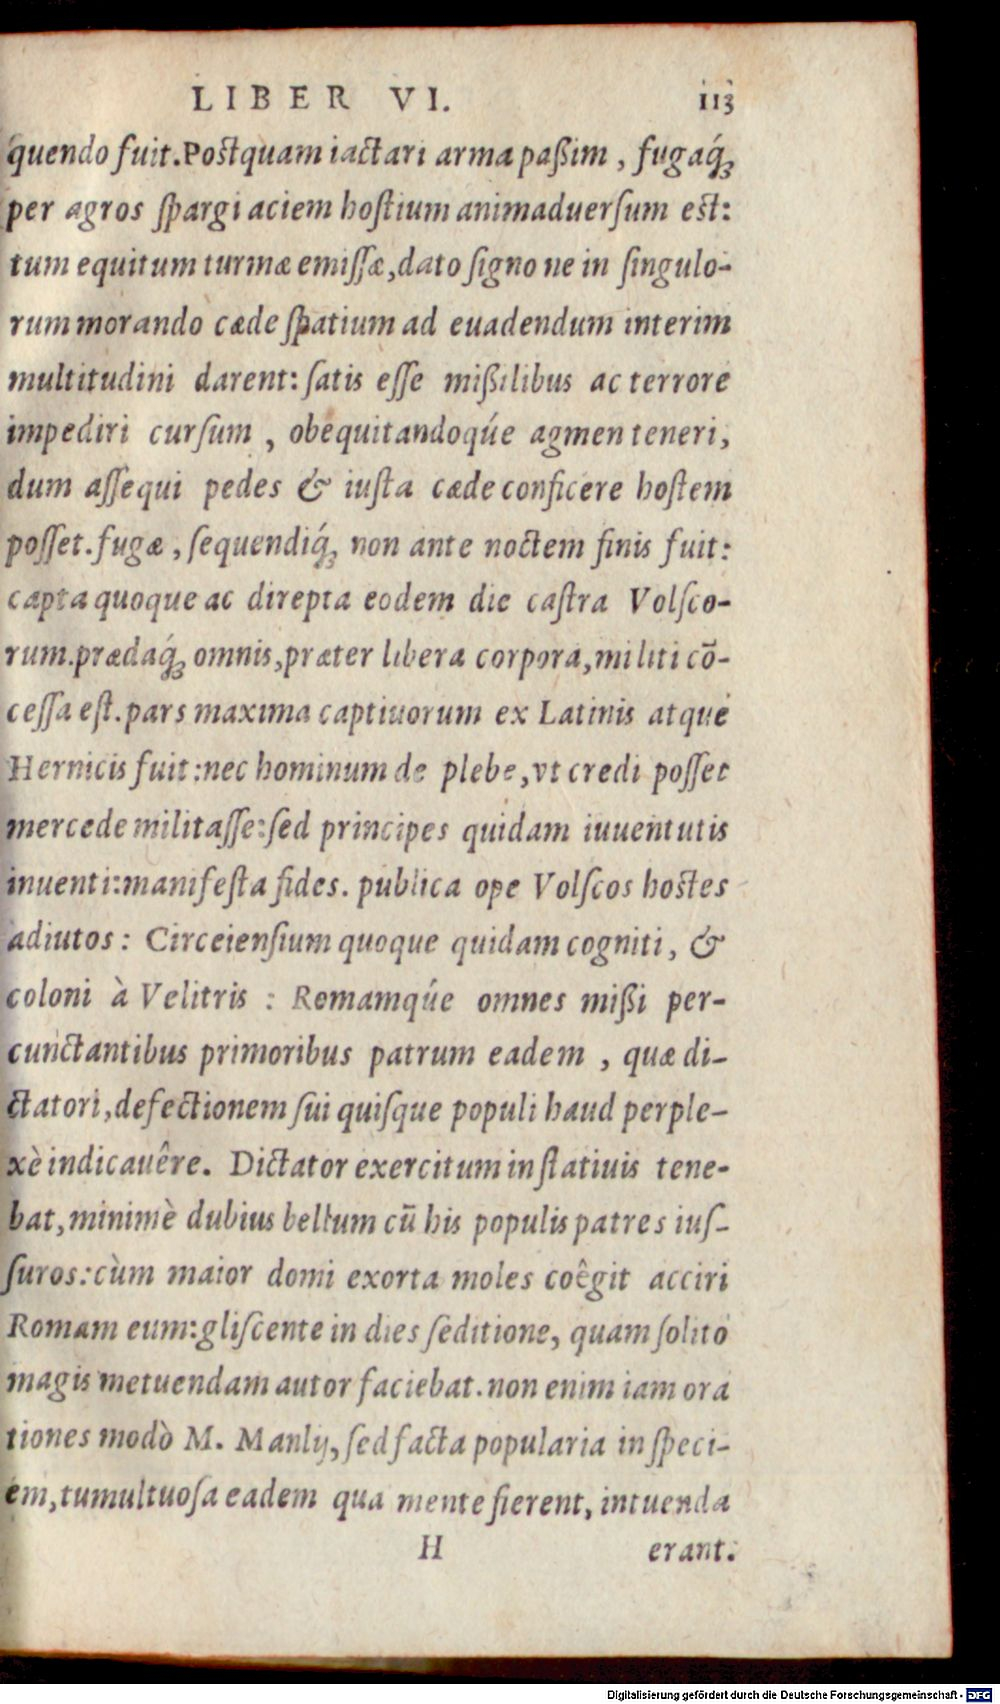 LIBER VI. 113
quendo fuit. Postquam iactari arma paßim, fugaq́;
per agros ſpargi aciem hoſtium animaduerſum est:
tum equitum turmæ emiſſæ, dato ſigno ne in ſingulo-
rum morando cæde ſpatium ad euadendum interim
multitudini darent: ſatis eſſe mißilibus ac terrore
impediri curſum, obequitandoqúe agmen teneri,
dum aſſequi pedes & iuſta cæde conficere hoſtem
poſſet. fugæ, ſequendiq́; non ante noctem finis fuit:
capta quoque ac direpta eodem die caſtra Volſco-
rum. prædaq́; omnis, præter libera corpora, militi cō-
ceſſa eſt. pars maxima captiuorum ex Latinis atque
Hernicis fuit: nec hominum de plebe, vt credi poſſet
mercede militaſſe: ſed principes quidam iuuentutis
inuenti: manifeſta fides. publica ope Volſcos hostes
adiutos: Circeienſium quoque quidam cogniti, &
coloni à Velitris: Romamqúe omnes mißi per-
cunctantibus primoribus patrum eadem, quæ di-
ctatori, defectionem ſui quiſque populi haud perple-
xè indicauêre. Dictator exercitum in ſtatiuis tene-
bat, minimè dubius bellum cū his populis patres iuſ-
ſuros: cùm maior domi exorta moles coêgit acciri
Romam eum: gliſcente in dies ſeditione, quam ſolito
magis metuendam autor faciebat. non enim iam ora
tiones modò M. Manlij, ſed facta popularia in ſpeci-
em, tumultuoſa eadem qua mente fierent, intuenda
H erant.
Digitalisierung gefördert durch die Deutsche Forschungsgemeinschaft - DFG